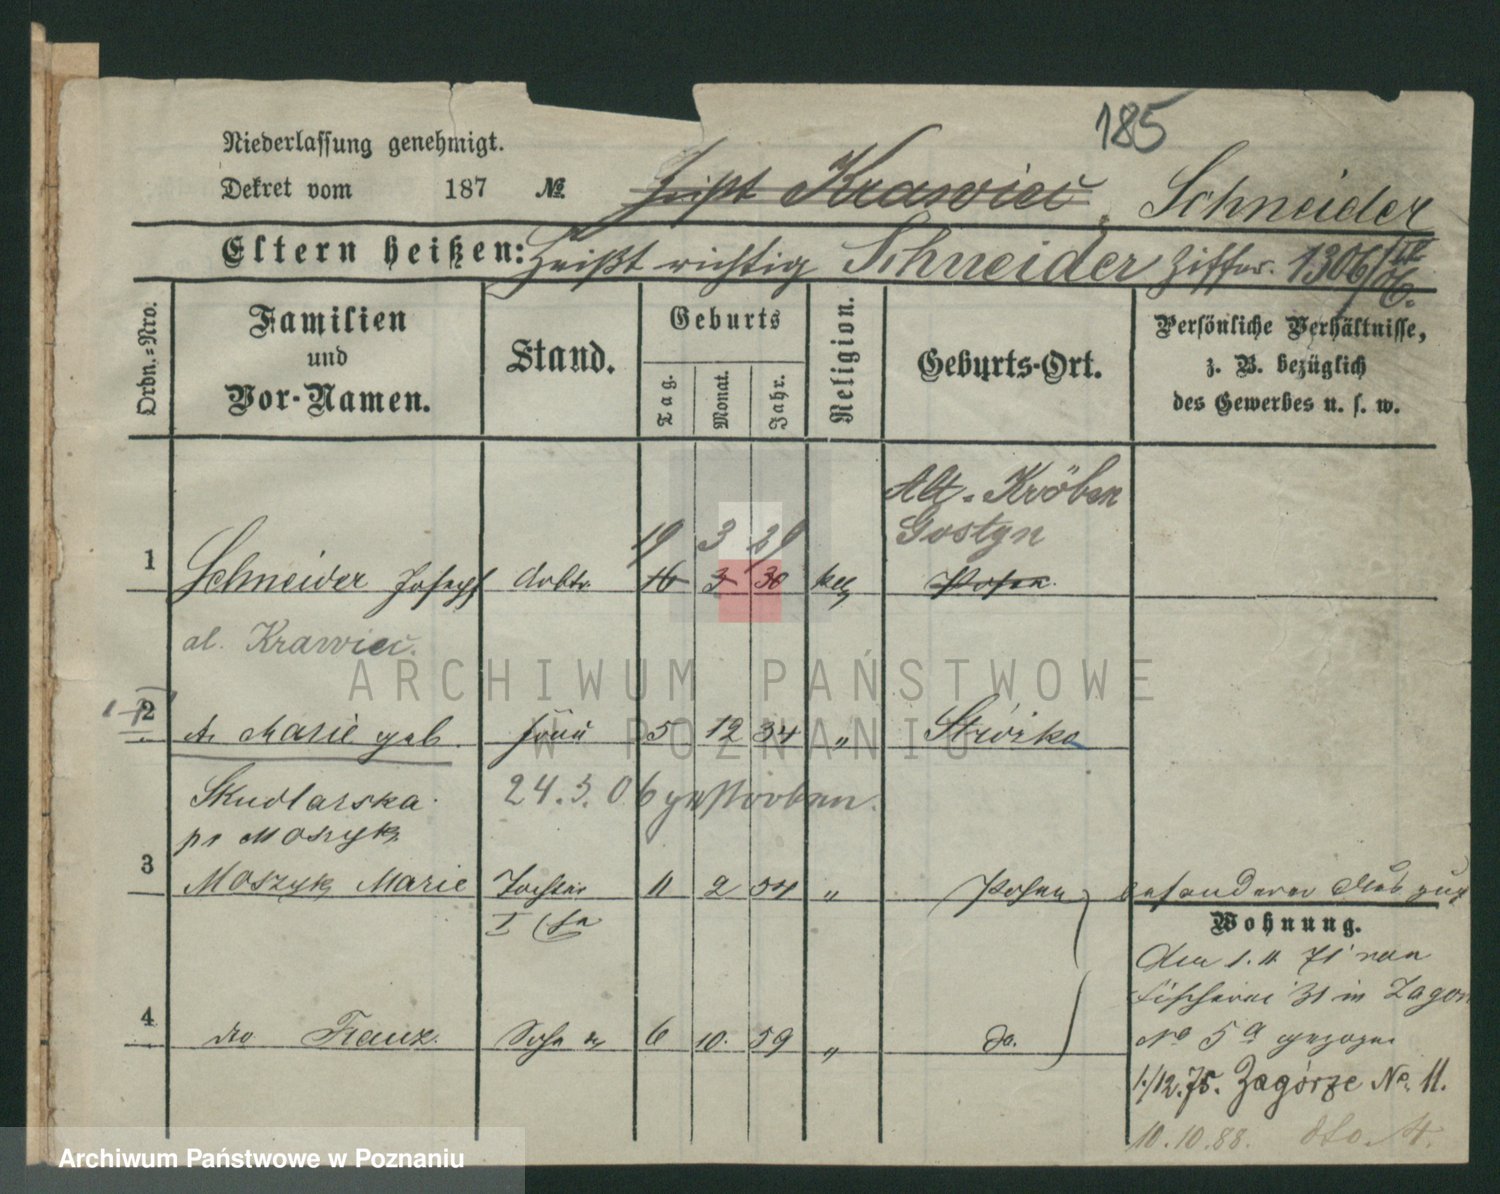 185
Niederlassung genehmigt.
Dekret vom 187 №
heißt Krawiec Schneider
Eltern heißen: Heißt richtig Schneider Ziffer. 1306/06.
Ordn.=Nro.
Familien und Vor-Namen.
Stand.
Geburts
Tag.
Monat.
Jahr.
Religion.
Geburts-Ort.
Persönliche Verhältnisse,
z. B. bezüglich
des Gewerbes u. s. w.
Alt-Kröben
19 3 29 Gostyn
1 Schneider Joseph Arbtr. 16 3 30 kath Posen.
al. Krawiec.
2 Marie geb. Frau 5 12 34 " Stróżka
Skudlarska 24.3.06 gestorben.
pr Moszyk
3 Moszyk Marie Tochter 11 2 54 " Posen besonderer
I
Wohnung.
Den 1. 11. 71 von
Fischerei 31 in Zagorz
No 5a gezogen
4 dto Franz. Sohn 6 10. 59 " do.
1./12.75. Zagórze No. 11.
10.10.88. dto. 4.
ARCHIWUM PAŃSTWOWE
W POZNANIU
Archiwum Państwowe w Poznaniu